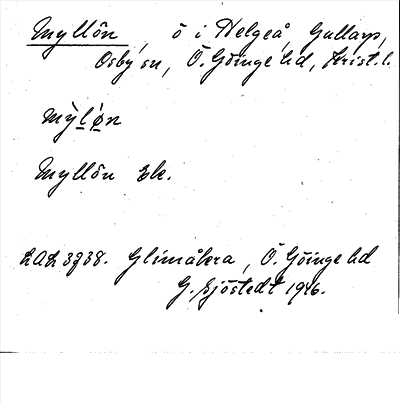 Myllön, ö i Helgeå, Gullarp,
Osby sn, Ö. Göinge hd, Krist. l.
mỳl ǿn
Myllön Ek.
LAL 3738. Glimåkra, Ö. Göinge hd
G. Sjöstedt 1926.